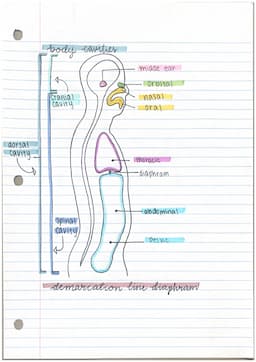 body cavities
middle ear
orbital
nasal
oral
cranial
cavity
dorsal
cavity
thoracic
diaphram
spinal
cavity
abdominal
pelvic
demarcation line diaphram